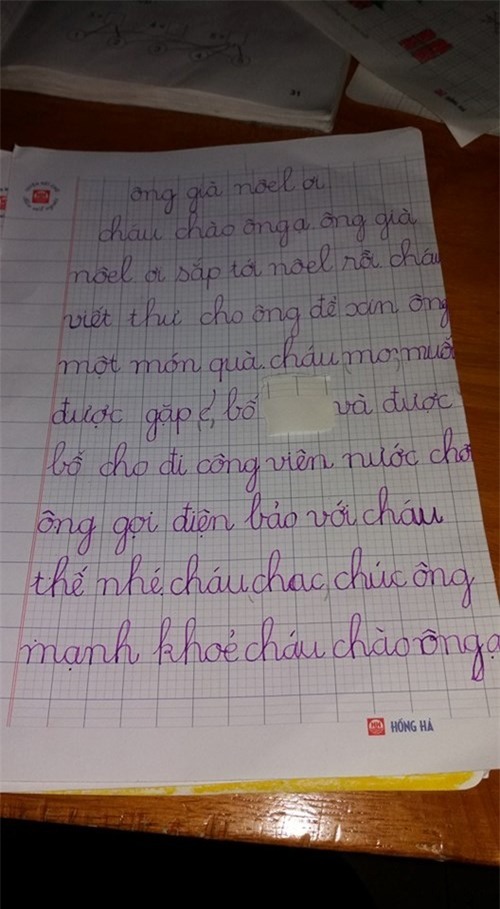 31
HỒNG HÀ
ông già nôel ơi
cháu chào ông ạ ông già
nôel ơi sắp tới nôel rồi cháu
viết thư cho ông để xin ông
một món quà. cháu mơ muốn
được gặp bố và được
bố cho đi công viên nước chơi
ông gọi điện bảo với cháu
thế nhé. cháu chac chúc ông
mạnh khoẻ cháu chào ông ạ
HỒNG HÀ